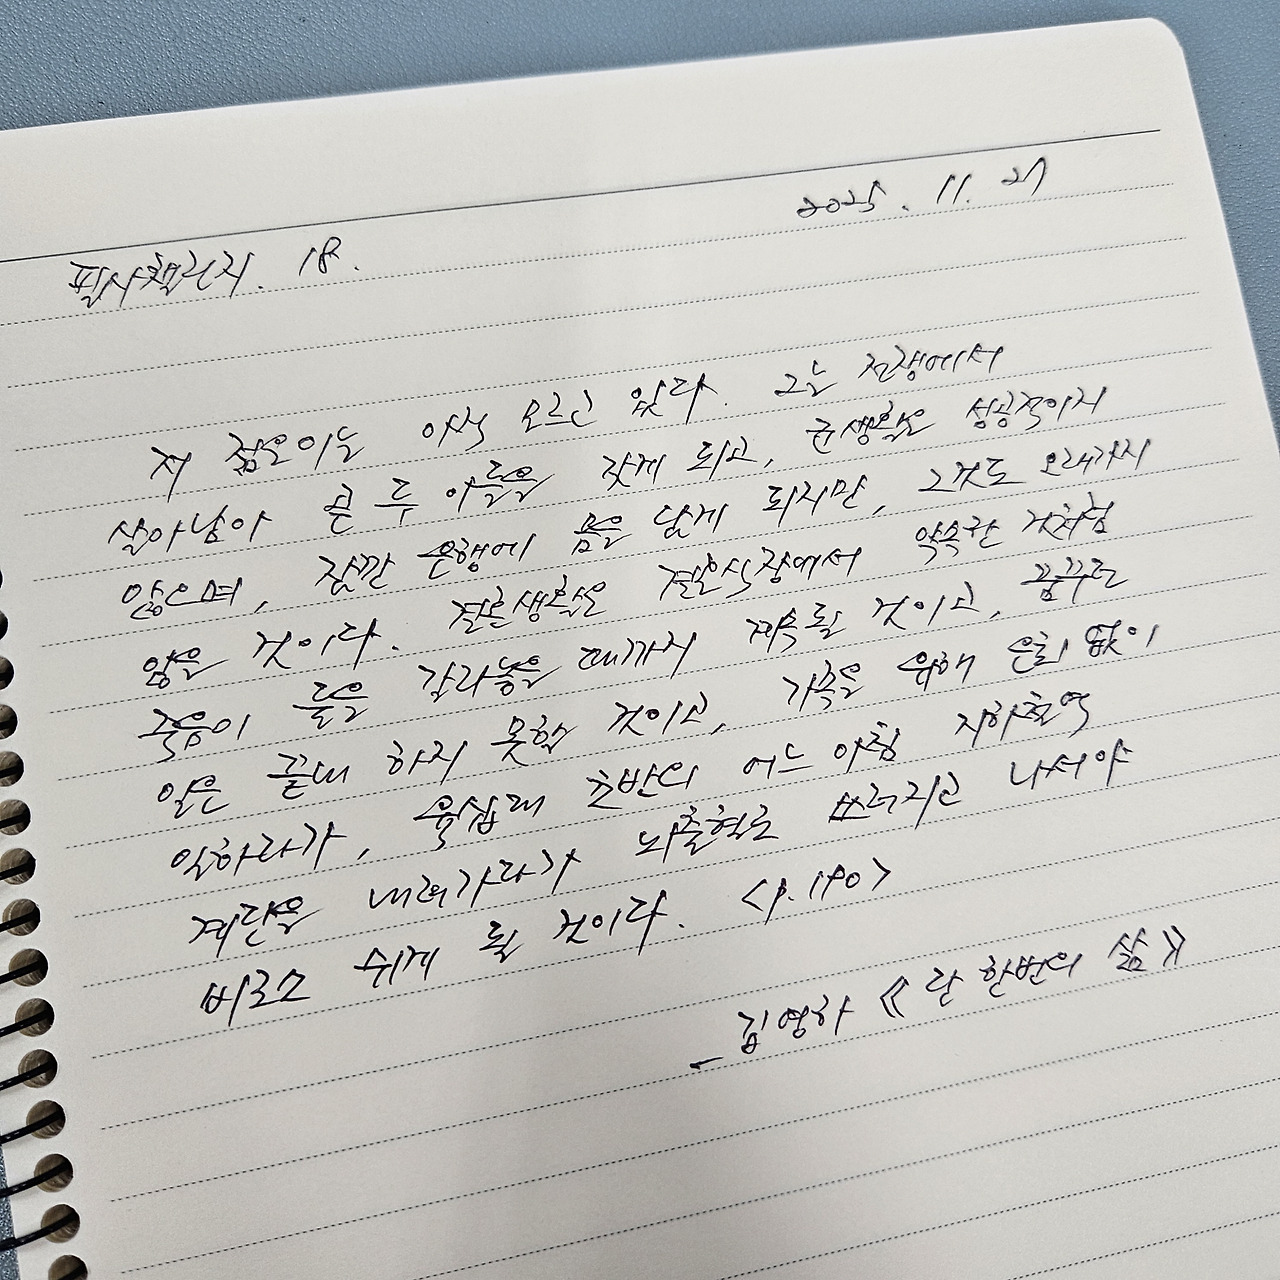 2025. 11. 27
필사챌린지. 18.
저 젊은이는 아직 모르고 있다. 그는 전쟁에서
살아남아 곧 두 아들을 갖게 되고, 군생활은 성공적이지
않으며, 잠깐 은행에 몸을 담게 되지만, 그것도 오래가지
않을 것이다. 결혼생활은 결혼식장에서 약속한 것처럼
죽음이 둘을 갈라놓을 때까지 계속될 것이고, 꿈꾸던
일은 끝내 하지 못할 것이고, 가족을 위해 은퇴 없이
일하다가, 육십대 초반의 어느 아침 지하철역
계단을 내려가다가 뇌출혈로 쓰러지고 나서야
비로소 쉬게 될 것이다. <p.190>
_ 김영하 《단 한번의 삶》